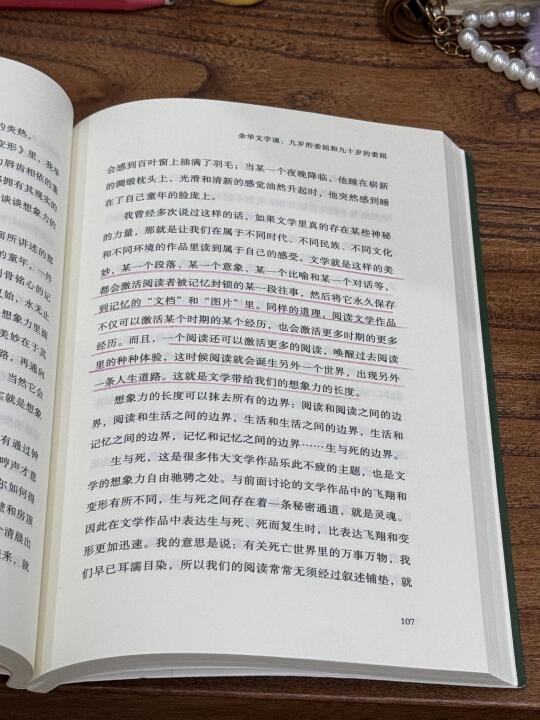 的炎热。
变形》里，我举
的唇齿相依的重
都拥有其现实的
谈谈想象力的
面所讲述的那
的童年，一件
刻骨铭心的记
以始，永无止
想象力里剧
美妙在于其
路，再通向
当然它会
实就是想象
有通过钟
哼声才意
尔如何得
壁和房顶
个清晨出
来，就
余华文学课：九岁的委屈和九十岁的委屈
会感到百叶窗上插满了羽毛；当某一个夜晚降临，他睡在崭新
的绸缎枕头上，光滑和清新的感觉油然升起时，他突然感到睡
在了自己童年的脸庞上。
我曾经多次说过这样的话，如果文学里真的存在某些神秘
的力量，那就是让我们在属于不同时代、不同民族、不同文化
和不同环境的作品里读到属于自己的感受。文学就是这样的美
妙，某一个段落、某一个意象、某一个比喻和某一个对话等，
都会激活阅读者被记忆封锁的某一段往事，然后将它永久保存
到记忆的“文档”和“图片”里。同样的道理，阅读文学作品
不仅可以激活某个时期的某个经历，也会激活更多时期的更多
经历。而且，一个阅读还可以激活更多的阅读，唤醒过去阅读
里的种种体验，这时候阅读就会诞生另外一个世界，出现另外
一条人生道路。这就是文学带给我们的想象力的长度。
想象力的长度可以抹去所有的边界：阅读和阅读之间的边
界，阅读和生活之间的边界，生活和生活之间的边界，生活和
记忆之间的边界，记忆和记忆之间的边界……生与死的边界。
生与死，这是很多伟大文学作品乐此不疲的主题，也是文
学的想象力自由驰骋之处。与前面讨论的文学作品中的飞翔和
变形有所不同，生与死之间存在着一条秘密通道，就是灵魂。
因此在文学作品中表达生与死、死而复生时，比表达飞翔和变
形更加迅速。我的意思是说：有关死亡世界里的万事万物，我
们早已耳濡目染，所以我们的阅读常常无须经过叙述铺垫，就
107